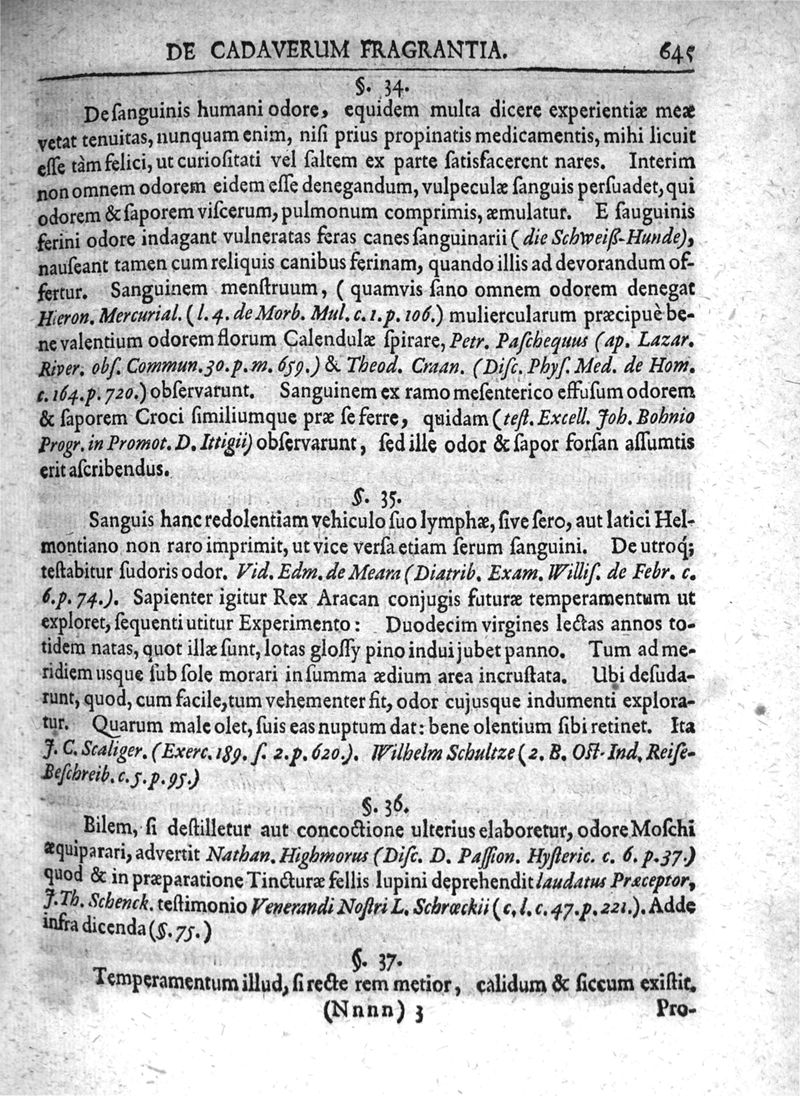 DE CADAVERUM FRAGRANTIA. 645
§. 34.
De ſanguinis humani odore, equidem multa dicere experientiæ meæ
vetat tenuitas, nunquam enim, niſi prius propinatis medicamentis, mihi licuit
eſſe tàm felici, ut curioſitati vel ſaltem ex parte ſatisfacerent nares. Interim
non omnem odorem eidem eſſe denegandum, vulpeculæ ſanguis perſuadet, qui
odorem & ſaporem viſcerum, pulmonum comprimis, æmulatur. E ſauguinis
ferini odore indagant vulneratas feras canes ſanguinarii (die Schweiß-Hunde),
nauſeant tamen cum reliquis canibus ferinam, quando illis ad devorandum of-
fertur. Sanguinem menſtruum, (quamvis ſano omnem odorem denegat
Hieron. Mercurial. (l. 4. de Morb. Mul. c. 1. p. 106.) muliercularum præcipuè be-
ne valentium odorem florum Calendulæ ſpirare, Petr. Paſchequus (ap. Lazar.
River. obſ. Commun. 30. p. m. 659.) & Theod. Craan. (Diſc. Phyſ. Med. de Hom.
c. 164. p. 720.) obſervarunt. Sanguinem ex ramo meſenterico effuſum odorem
& ſaporem Croci ſimiliumque præ ſe ferre, quidam (teſt. Excell. Joh. Bohnio
Progr. in Promot. D. Ittigii) obſervarunt, ſed ille odor & ſapor forſan aſſumtis
erit aſcribendus.
§. 35.
Sanguis hanc redolentiam vehiculo ſuo lymphæ, ſive ſero, aut latici Hel-
montiano non raro imprimit, ut vice verſa etiam ſerum ſanguini. De utroq;
teſtabitur ſudoris odor. Vid. Edm. de Meara (Diatrib. Exam. Williſ. de Febr. c.
6. p. 74.). Sapienter igitur Rex Aracan conjugis futuræ temperamentum ut
exploret, ſequenti utitur Experimento: Duodecim virgines lectas annos to-
tidem natas, quot illæ ſunt, lotas gloſſy pino indui jubet panno. Tum ad me-
ridiem usque ſub ſole morari in ſumma ædium area incruſtata. Ubi deſuda-
runt, quod, cum facile, tum vehementer fit, odor cujusque indumenti explora-
tur. Quarum male olet, ſuis eas nuptum dat: bene olentium ſibi retinet. Ita
J. C. Scaliger. (Exerc. 189. ſ. 2. p. 620.). Wilhelm Schultze (2. B. Oſt-Ind. Reiſe-
Beſchreib. c. 5. p. 95.)
§. 36.
Bilem, ſi deſtilletur aut concoctione ulterius elaboretur, odore Moſchi
æquiparari, advertit Nathan. Highmorus (Diſc. D. Paſſion. Hyſteric. c. 6. p. 37.)
quod & in præparatione Tincturæ fellis lupini deprehendit laudatus Præceptor,
J. Th. Schenck. teſtimonio Venerandi Noſtri L. Schrœckii (c. l. c. 47. p. 221.). Adde
infra dicenda (§. 75.)
§. 37.
Temperamentum illud, ſi recte rem metior, calidum & ſiccum exiſtit.
(Nnnn) 3 Pro-